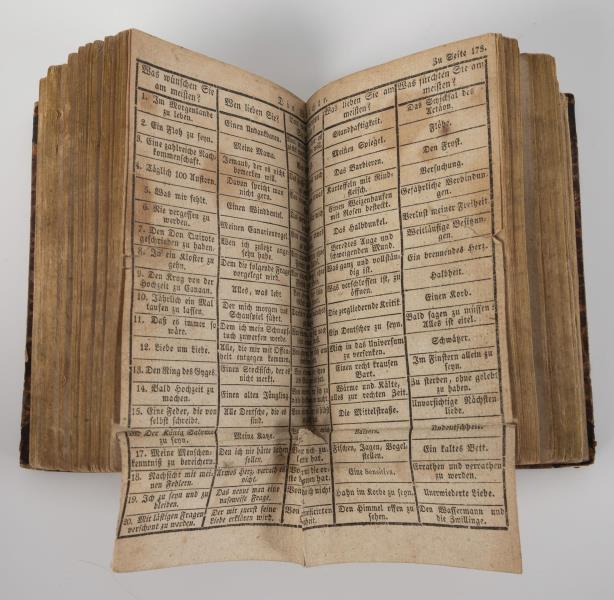 Zu Seite 178.
Was wünschen Sie
am meisten?
1. Im Morgenlande
zu leben.
2. Ein Floh zu seyn.
3. Eine zahlreiche Nach-
kommenschaft.
4. Täglich 100 Austern.
5. Was mir fehlt.
6. Nie vergessen zu
werden.
7. Den Don Quixote
geschrieben zu haben.
8. In ein Kloster zu
gehn.
9. Den Krug von der
Hochzeit zu Canaan.
10. Jährlich ein Mal
taufen zu lassen.
11. Daß es immer so
wäre.
12. Liebe um Liebe.
13. Den Ring des Gyges.
14. Bald Hochzeit zu
machen.
15. Eine Feder, die von
selbst schreibt.
Der König Salomo
zu seyn.
17. Meine Menschen-
kenntniß zu bereichern.
18. Nachsicht mit mei-
nen Fehlern.
19. Ich zu seyn und zu
bleiben.
20. Mit lästigen Fragen
verschont zu werden.
Wen lieben Sie?
Einen Unbekannten.
Meine Mama.
Jemand, der es nicht
bemerken will.
Davon spricht man
nicht gern.
Einen Windbeutel.
Meinen Canarienvogel.
Wen ich zuletzt ange-
sehn habe.
Dem die folgende Frage
vorgelegt wird.
Alles, was lebt.
Der mich morgen ins
Schauspiel führt.
Dem ich mein Schnupf-
tuch zuwerfen werde.
Alle, die mir mit Offen-
heit entgegen kommen.
Einen Stockfisch, der es
nicht merkt.
Einen alten Jüngling.
Alle Deutsche, die es
sind.
Meine Katze.
Den ich nie hätte lieben
sollen.
Armes Herz, verrath es
nicht.
Das nennt man eine
naseweise Frage.
Der mir zuerst seine
Liebe erklären wird.
Was lieben Sie am
meisten?
Standhaftigkeit.
Meinen Spiegel.
Das Barbieren.
Kartoffeln mit Rind-
fleisch.
Einen Weizenhaufen
mit Rosen besteckt.
Das Halbdunkel.
Beredtes Auge und
schweigenden Mund.
Was ganz und vollstän-
dig ist.
Was verschlossen ist, zu
öffnen.
Die zergliedernde Kritik.
Ein Deutscher zu seyn.
Mich in das Universum
zu versenken.
Einen recht krausen
Bart.
Wärme und Kälte,
alles zur rechten Zeit.
Die Mittelstraße.
Fischen, Jagen, Vogel-
stellen.
Eine Sensitive.
Hahn im Korbe zu seyn.
Den Himmel offen zu
sehen.
Was fürchten Sie am
meisten?
Das Schicksal des
Actäon.
Flöhe.
Den Frost.
Versuchung.
Gefährliche Verbindun-
gen.
Verlust meiner Freiheit
Weitläufige Besitzun-
gen.
Ein brennendes Herz.
Halbheit.
Einen Korb.
Bald sagen zu müssen:
Alles ist eitel.
Schwätzer.
Im Finstern allein zu
seyn.
Zu sterben, ohne gelebt
zu haben.
Unvorsichtige Nächsten-
liebe.
Undeutschheit.
Ein kaltes Bett.
Errathen und verrathen
zu werden.
Unerwiederte Liebe.
Den Wassermann und
die Zwillinge.